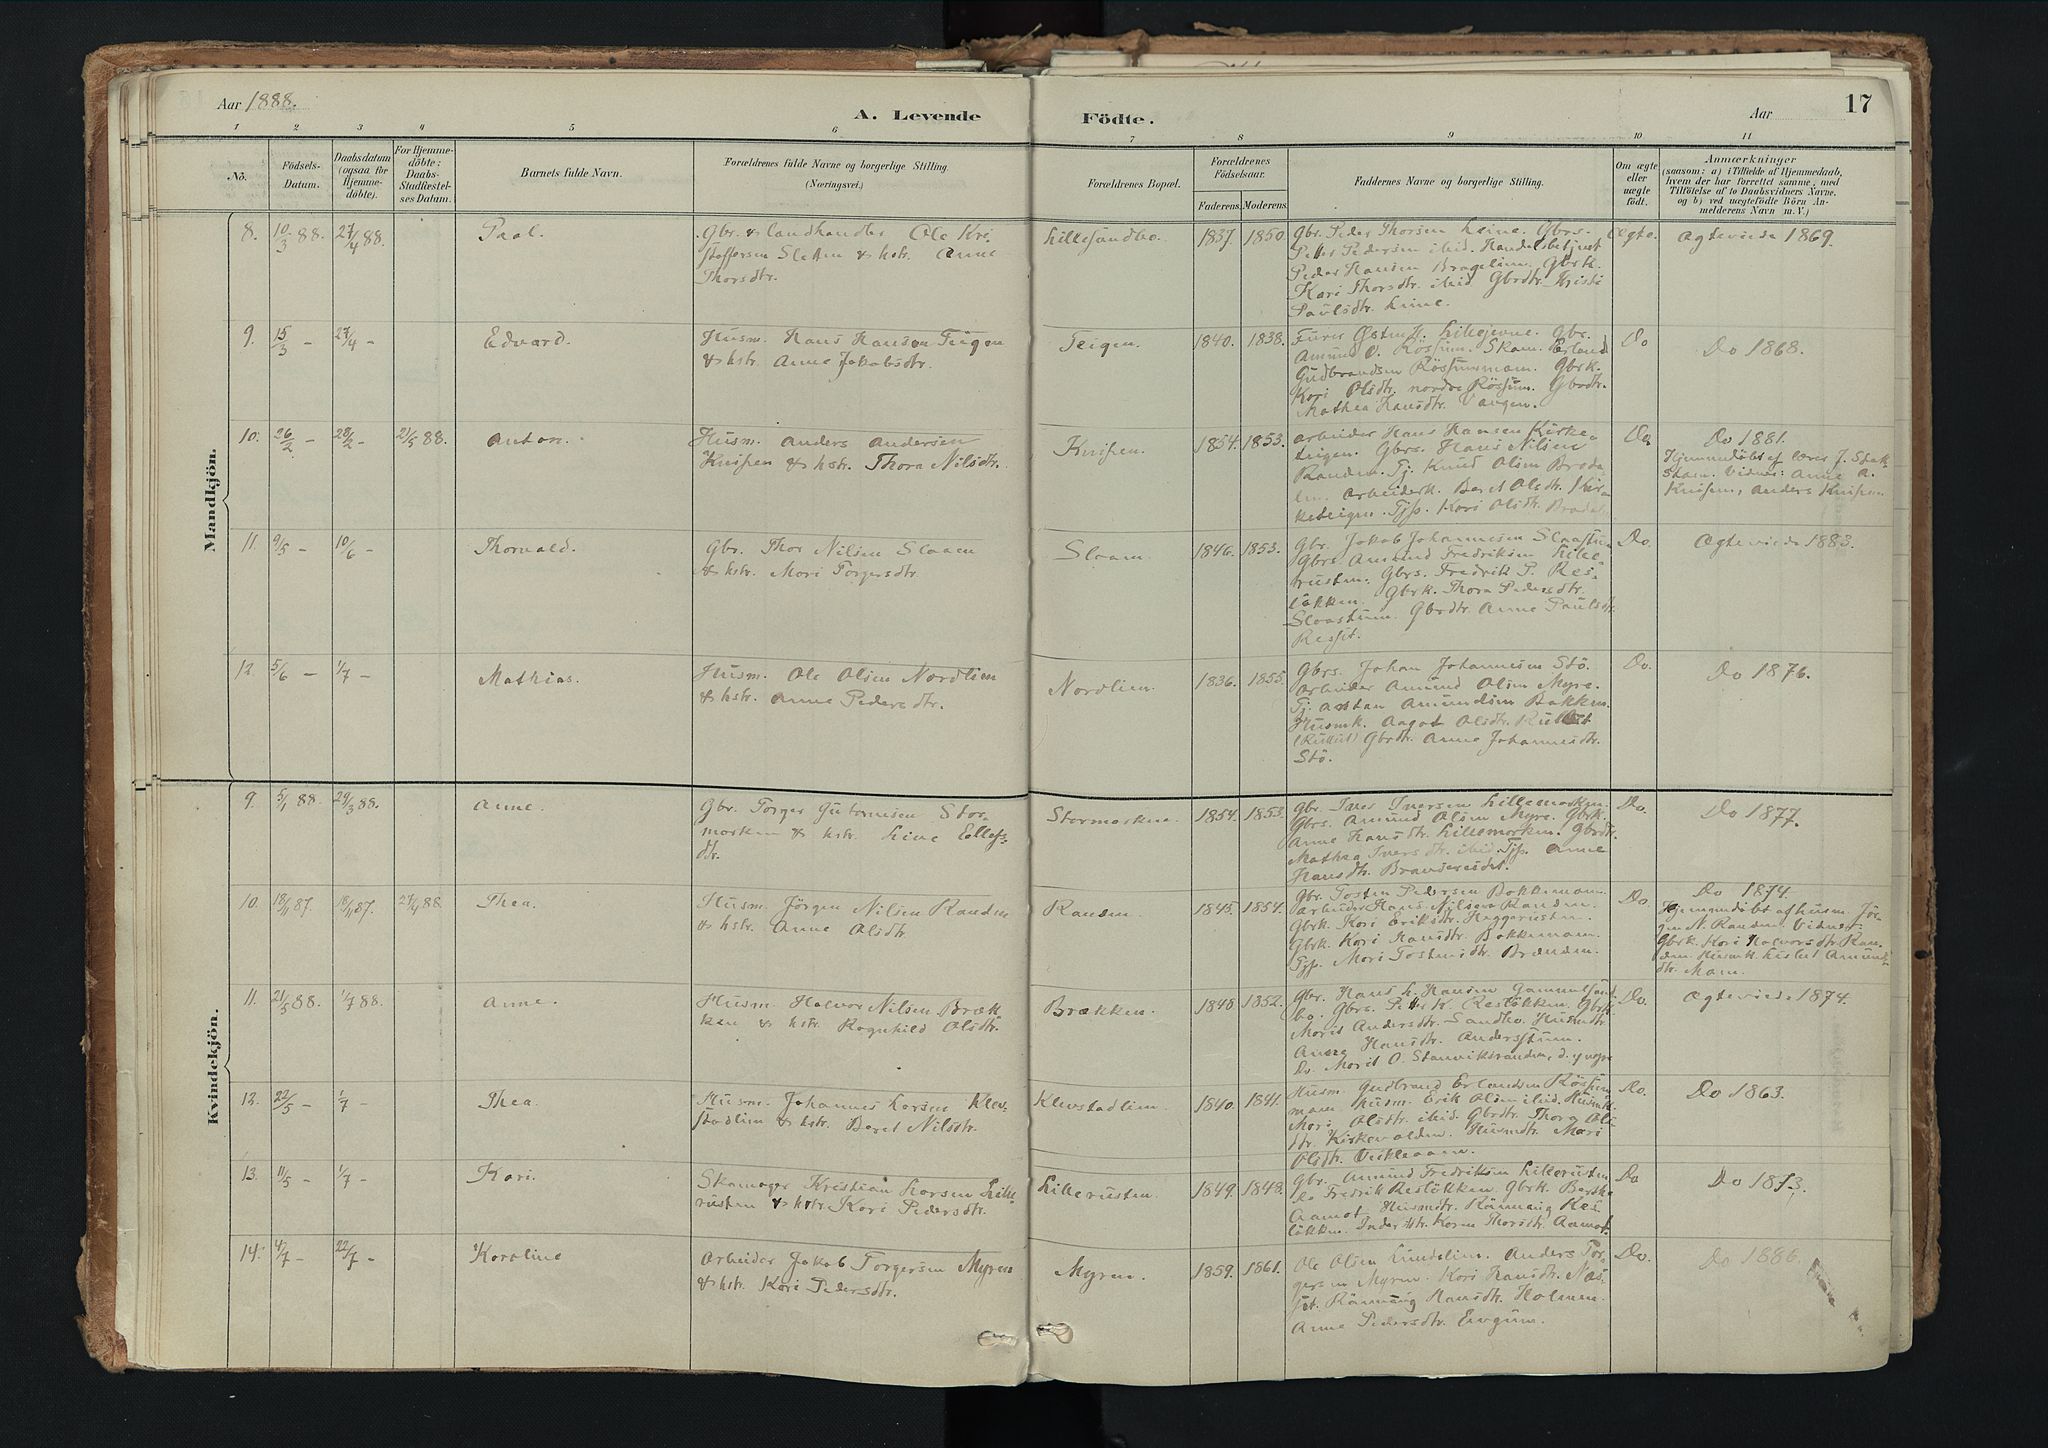 Aar 1888.
A. Levende Födte.
Aar
17
1 2 3 4 5 6 7 8 9 10 11
No.
Födsels-
Datum.
Daabsdatum
(ogsaa for
Hjemme-
döbte).
For Hjemme-
döbte:
Daabs-
Stadfæstel-
ses Datum.
Barnets fulde Navn.
Forældrenes fulde Navne og borgerlige Stilling
(Næringsvei.)
Forældrenes Bopæl.
Forældrenes
Födselsaar.
Faderens. Moderens.
Faddernes Navne og borgerlige Stilling.
Om ægte
eller
uægte
födt.
Anmærkninger
(saasom: a) i Tilfælde af Hjemmedaab,
hvem der har forrettet samme, med
Tilföielse af to Daabsvidners Navne,
og b) ved uægtefödte Börn An-
melderens Navn m. V.)
Mandkjön.
8. 10/3 88. 27/4 88. Paal.
Gbr. & Landhandler Ole Kri
stoffersen Sletten & hstr. Anne
Thorsdtr.
Lillesandbo. 1837. 1850.
Gbr. Peder Thorsen Leine. Gbrs.
Petter Pedersen ibid. Handelsbetjent
Peder Hansen Bragelien. Gbrk.
Kari Thorsdtr. ibid. Gbrdtr. Kristi
Paulsdtr. Leine.
Ægte. Ægteviede 1869.
9. 15/3 – 27/4 – Edvard.
Husm. Hans Hansen Teigen
& hstr. Anne Jakobsdtr.
Teigen. 1840. 1838.
Furer Østen H. Lillegjevne. Gbr.
Amund O. Rössum. Skom. Erland
Gudbrandsen Rössummoen. Gbrk.
Kari Olsdtr. nordre Rössum. Gbrdtr.
Mathea Hansdtr. Vangen.
Do Do 1868.
10. 26/2 – 28/2 – 21/5 88. Anton.
Husm. Anders Andersen
Knipen & hstr. Thora Nilsdtr.
Knipen. 1854. 1853.
Arbeider Hans Hansen Kirke-
teigen. Gbrs. Hans Nilsen
Randen. Tj. Knud Olsen Breda
len. Arbeiderk. Beret Olsdtr. Kir
keteigen. Tjp. Kari Olsdtr. Bredal.
Do Do 1881.
Hjemmedöbt af lærer J. Stak-
stam. Vidner: Anne A.
Knipen, Anders Knipen
11. 9/5 – 10/6 – Thorvald.
Gbr. Thor Nilsen Sloaen
& hstr. Mari Torgersdtr.
Sloaen. 1846. 1853.
Gbr. Jakob Johannesen Sloastuen
Gbrs. Amund Fredriksen Lille
rusten. Gbrs. Fredrik P. Res-
lökken. Gbrk. Thora Pedersdtr.
Sloastuen. Gbrdtr. Anne Paulsdtr.
Resset.
Do. Ægteviede 1883.
12. 5/6 – 1/7 – Mathias.
Husm. Ole Olsen Nordlien
& hstr. Anne Pedersdtr.
Nordlien. 1836. 1855.
Gbrs. Johan Johannesen Stö.
Arbeider Amund Olsen Myre.
Tj. Austen Amundsen Bakken.
Husmk. Aagot Olsdtr. Rullut
(Rullut) Gbrdtr. Anne Johannesdtr.
Stö.
Do. Do 1876.
Kvindekjön.
9. 5/1 88. 29/3 88. Anne.
Gbr. Torger Guttormsen Stor-
morken & hstr. Line Ellefs-
dtr.
Stormorken. 1854. 1853.
Gbr. Iver Iversen Lillemorken.
Gbrs. Amund Olsen Myre. Gbrk.
Anne Hansdtr. Lillemorken. Gbrdtr.
Mathea Iversdtr. ibid. Tjp. Anne
Hansdtr. Brandseiedet.
Do. Do 1877.
10. 18/11 87. 18/11 87. 27/4 88. Thea.
Husm. Jörgen Nilsen Randen
& hstr. Anne Olsdtr.
Randen. 1845. 1854.
Gbr. Tosten Pedersen Bakkemoen.
Arbeider Hans Nilsen Randen.
Gbrk. Kari Eriksdtr. Heggerusten.
Gbrk. Kari Hansdtr. Bakkemoen.
Tjp. Mari Tostensdtr. Brænden.
Do. Do 1874.
Hjemmedöbt af husm. Jör-
gen N. Randen. Vidner:
Gbrk. Kari Halvorsdtr. Ran-
den. Husmk. Lisbet Amunds
dtr. Moen.
11. 21/5 88. 1/7 88. Anne.
Husm. Halvor Nilsen Bræk
ken & hstr. Ragnhild Olsdtr.
Brækken. 1848 1852.
Gbr. Hans L. Hansen Gammelsand
bo. Gbrs. Petter K. Reslökken. Gbrk.
Marit Andersdtr. Sandbo. Husmdtr.
Anne Hansdtr. Andersstuen.
Do. Marit O. Stenviksranden, d. yngre
Do. Ægteviede 1874.
12. 22/5 – 1/7 – Thea.
Husm. Johannes Larsen Klev-
stadlien & hstr. Beret Nilsdtr.
Klevstadlien. 1840. 1841.
Husm. Gudbrand Erlandsen Rössum
moen. Husm. Erik Olsen ibid. Husmk.
Mari Olsdtr. ibid. Gbrdtr. Thora Ols
dtr. Kirkevolden. Husmdtr. Mari
Olsdtr. Veikleaaen.
Do. Do 1863.
13. 11/5 – 1/7 – Kari.
Skomager Kristian Larsen Lille
rusten & hstr. Kari Pedersdtr.
Lillerusten. 1849. 1848.
Gbr. Amund Fredriksen Lillerusten
Do Fredrik Reslökken. Gbrk. Berthe
Aamot. Husmdtr. Rönnaug Res
lökken. Inderstr. Karen Thorsdtr. Aamot.
Do Do 1873.
14. 4/7 22/7 – Karoline
Arbeider Jakob Torgersen Myren
& hstr. Kari Pedersdtr.
Myren. 1859. 1861.
Ole Olsen Lundelien. Anders Tor
gersen Myren. Kari Hansdtr. Næs-
set. Rönnaug Hansdtr. Holmen.
Anne Pedersdtr. Envgum.
Do. Do 1886.